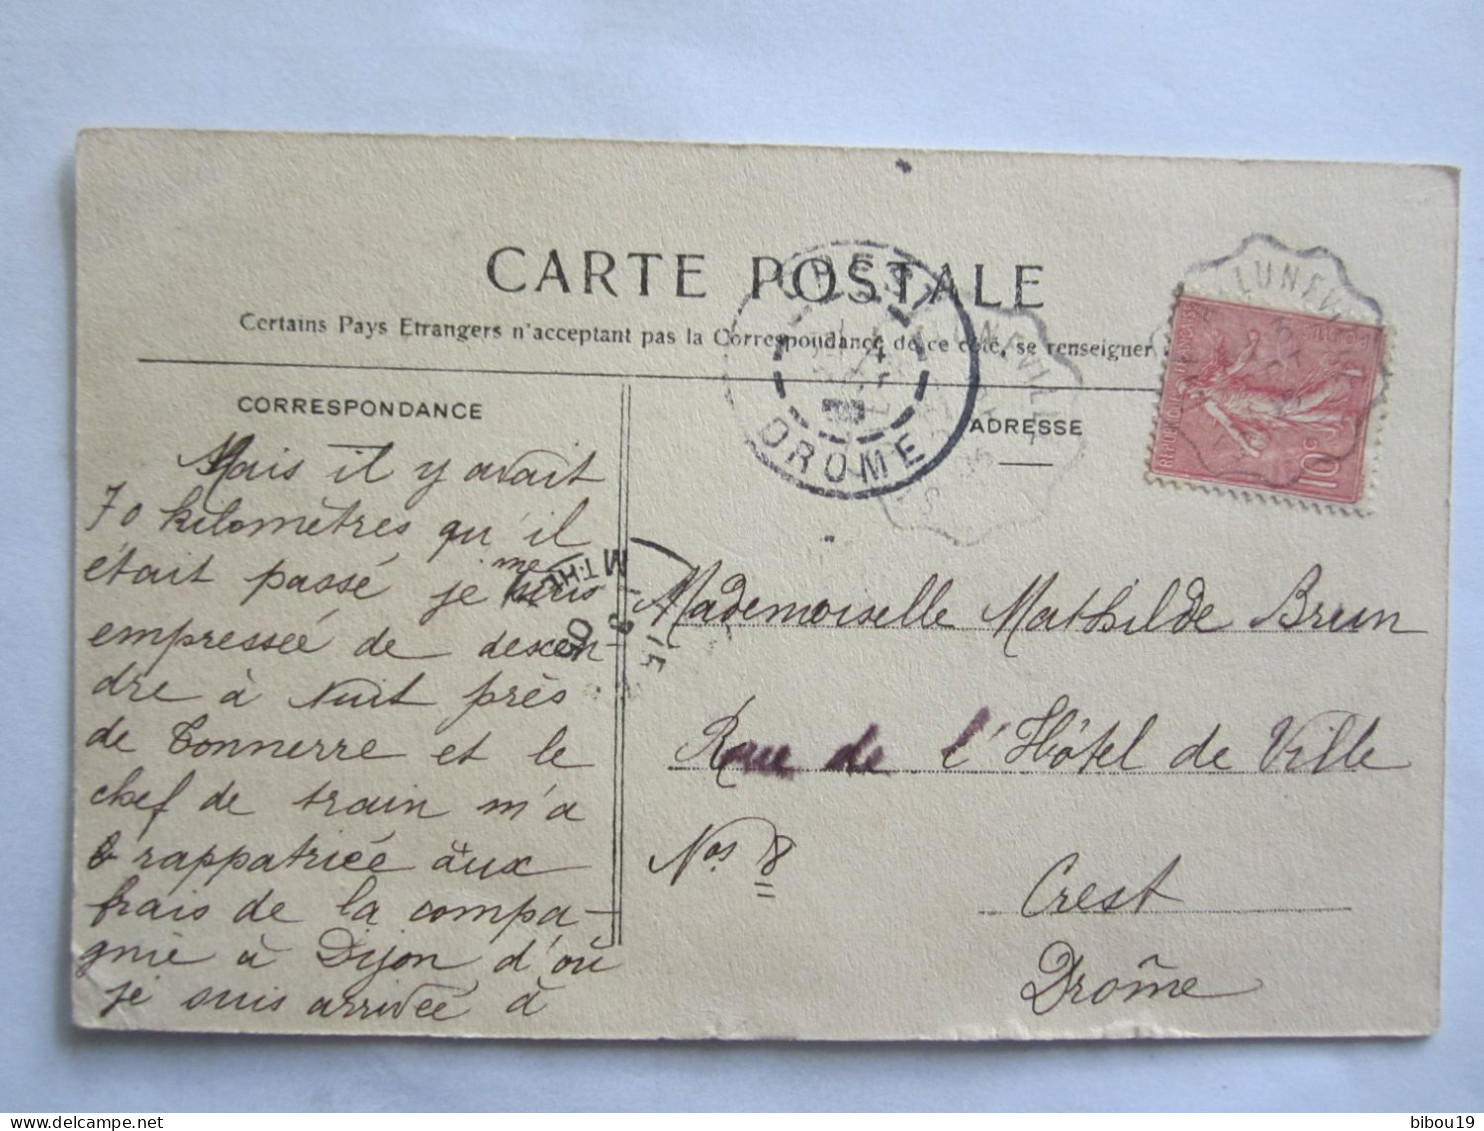 CARTE POSTALE
Certains Pays Etrangers n'acceptant pas la Correspondance de ce côté, se renseigner
CORRESPONDANCE
ADRESSE
Mais il y avait
70 kilomètres qu'il
était passé je me suis
empresseé de descen-
dre à Nuit près
de Tonnerre et le
chef de train m'a
rappatriée aux
frais de la compa-
gnie à Dijon d'où
je suis arrivée à
Mademoiselle Mathilde Brun
Rue de l'Hôtel de Ville
Nos 8
Crest
Drôme
CREST
DROME
LUNEVILLE
10c
bibou19